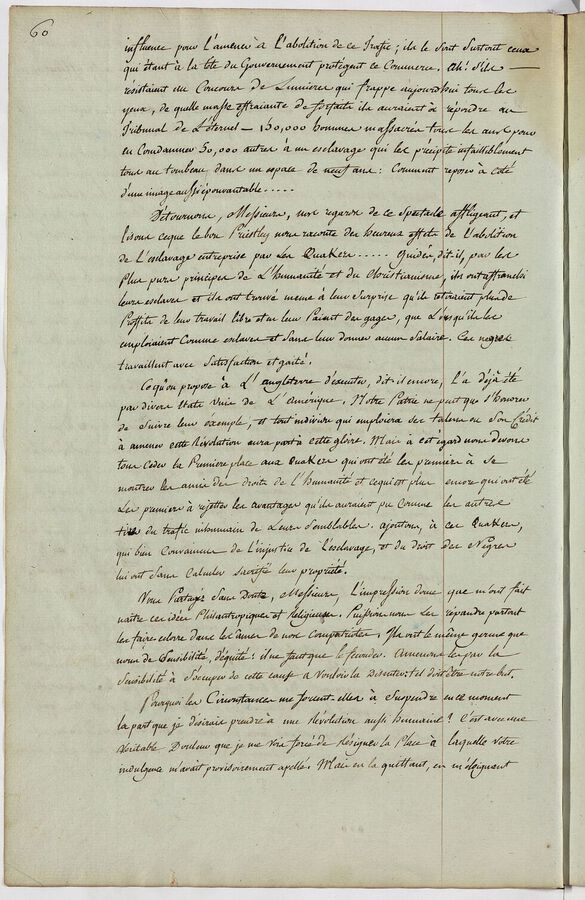 60
influence pour l'amener à l'abolition de ce Trafic ; ils le sont surtout ceux
qui étant à la tête du Gouvernement protégent ce Commerce. Ah! s'ils —
résistaient au Concours de Lumieres qui frappe aujourd'hui tous les
yeux, de quelle masse effraiante de forfaits ils auraient à répondre au
Tribunal de L'éternel — 150,000 hommes massacrés tous les ans pour
en Condamner 50,000 autres à un esclavage qui les précipite infailliblement
tous au tombeau dans un espace de neuf ans : Comment reposer à coté
d'une image aussi épouvantable.....
Détournons, Messieurs, nos regards de ce Spectacle affligeant, et
lisons ceque le bon Priestley nous raconte des heureux effets de L'abolition
de L'esclavage entreprise par Les Quakers..... Guidés, dit-il, par les
Plus purs principes de L'humanité et du Christianisme, ils ont affranchi
leurs esclaves et ils ont trouvé meme à leur Surprise qu'ils retiraient plus de
Proffits de leur travail libre et en leur Paiant des gages, que Lorsqu'ils les
emploiaient Comme esclaves et Sans leur donner aucun Salaire. Ces negres
travaillent avec Satisfaction et gaité.
Ce qu'on propose à L'angleterre d'executer, dit-il encore, L'a déjà été
par divers Etats Unis de L'amérique. Notre Patrie ne peut que s'honorer
de Suivre leur exemple, et tout individu qui emploiera ses talens ou Son Crédit
à amener cette Révolution aura part à cette gloire. Mais à cet égard nous devons
tous ceder la Premiere place aux Quakers qui ont été les premiers à se
montrer les amis des droits de L'humanité et cequi est plus encore qui ont été
Les premiers à rejetter les avantages qu'ils auraient pu Comme les autres
tirer du trafic inhumain de Leurs Semblables. ajoutons, à ces Quakers,
qui bien Convaincus de L'injustice de L'esclavage, et du droit des Négres
lui ont Sans Calculer Sacrifié leur propriété.
Vous Partagez Sans doute, Messieurs, L'impression douce que m'ont fait
naitre ces idées Philantropiques et Religieuses. Puissions nous Les répandre partout
les faire eclorre dans les ames de nos Compatriotes. Ils ont le même germe que
nous de Sensibilité, d'équité : il ne faut que le feconder. Amenons les par la
Sensibilité à S'occuper de cette cause à Vouloir la Discuter : tel doit être notre but.
Pourquoi les Circonstances me forcent-elles à Suspendre en ce moment
la part que je désirais prendre à une Révolution aussi humaine ? C'est avec une
Véritable Douleur que je me vois forcé de Résigner la Place à laquelle votre
indulgence m'avait provisoirement apellé. Mais en la quittant, en m'éloignant